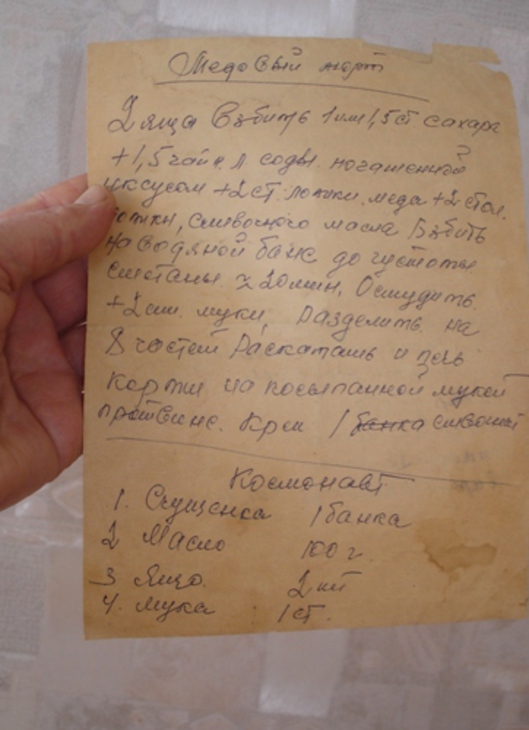 Медовый торт
2 яйца взбить 1 или 1,5 ст сахара
+1,5 чайн. л соды погашенной
уксусом + 2 ст. ложки меда + 2 стол.
ложки, сливочного масла взбить
на водяной бане до густоты
сметаны ≈ 20 мин. Остудить
+ 2 ст. муки, разделить на
8 частей раскатать и печь
коржи на посыпанной мукой
противне. Крем 1 банка
Космонавт
1. Сгущенка 1 банка
2 Масло 100 г.
3 Яйцо. 2 шт
4. мука 1 ст.